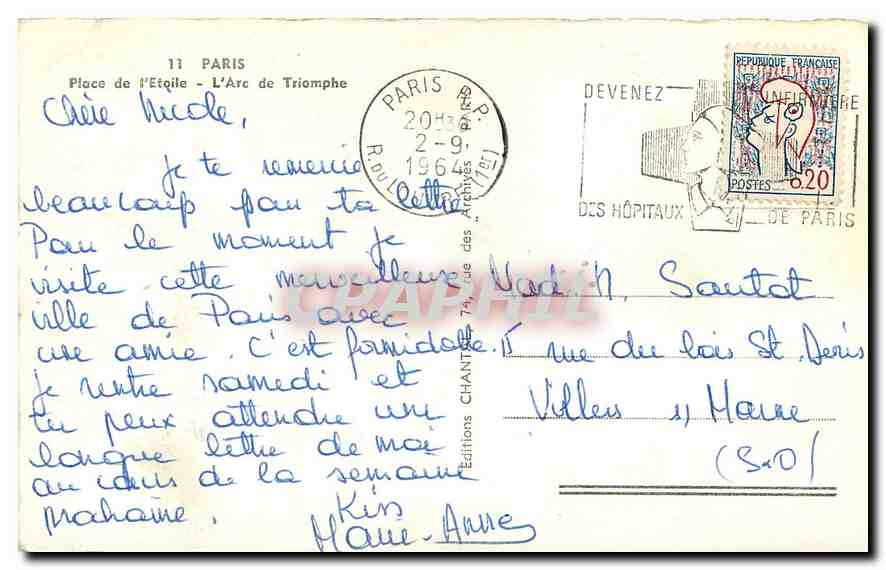 11 PARIS
Place de l'Etoile - L'Arc de Triomphe
Chère Nicole,
Je te remercie
beaucoup pour ta lettre
Pour le moment je
visite cette merveilleuse
ville de Paris avec
une amie. C'est formidable.
je rentre samedi et
tu peux attendre une
longue lettre de moi
au cours de la semaine
prochaine.
Kiss
Marie-Anne
PARIS R.P.
20H30
2-9
1964
R. DU LOUVRE (1er)
DEVENEZ INFIRMIERE
DES HÔPITAUX DE PARIS
REPUBLIQUE FRANÇAISE
POSTES 0.20
Editions CHANTAL 74, rue des Archives PARIS
CPAPHIL
Mad. N. Sautot
rue du bois St. Denis
Villiers s/ Marne
(S.O)